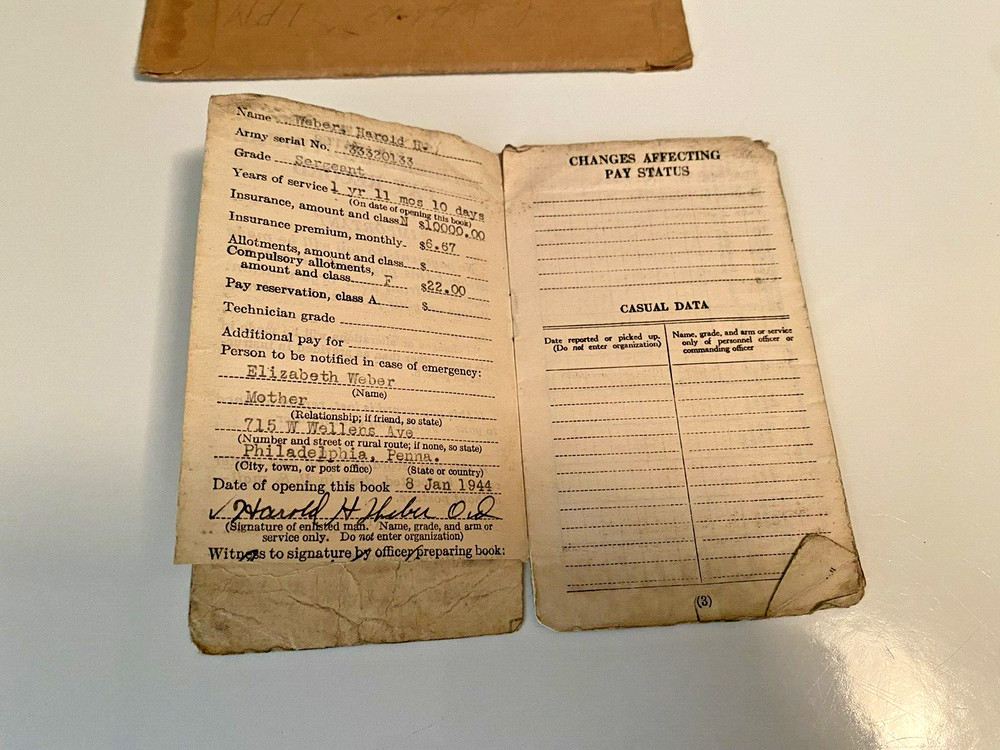 Name Weber, Harold H.
Army serial No. 33320133
Grade Sergeant
Years of service 1 yr 11 mos 10 days
(On date of opening this book)
Insurance, amount and class N $10000.00
Insurance premium, monthly $6.67
Allotments, amount and class $
Compulsory allotments,
amount and class F $22.00
Pay reservation, class A $
Technician grade
Additional pay for
Person to be notified in case of emergency:
Elizabeth Weber
(Name)
Mother
(Relationship; if friend, so state)
715 W Wellens Ave
(Number and street or rural route; if none, so state)
Philadelphia, Penna.
(City, town, or post office) (State or country)
Date of opening this book 8 Jan 1944
Harold H Weber
(Signature of enlisted man. Name, grade, and arm or
service only. Do not enter organization)
Witness to signature by officer preparing book:
CHANGES AFFECTING
PAY STATUS
CASUAL DATA
Date reported or picked up.
(Do not enter organization)
Name, grade, and arm or service
only of personnel officer or
commanding officer
(3)